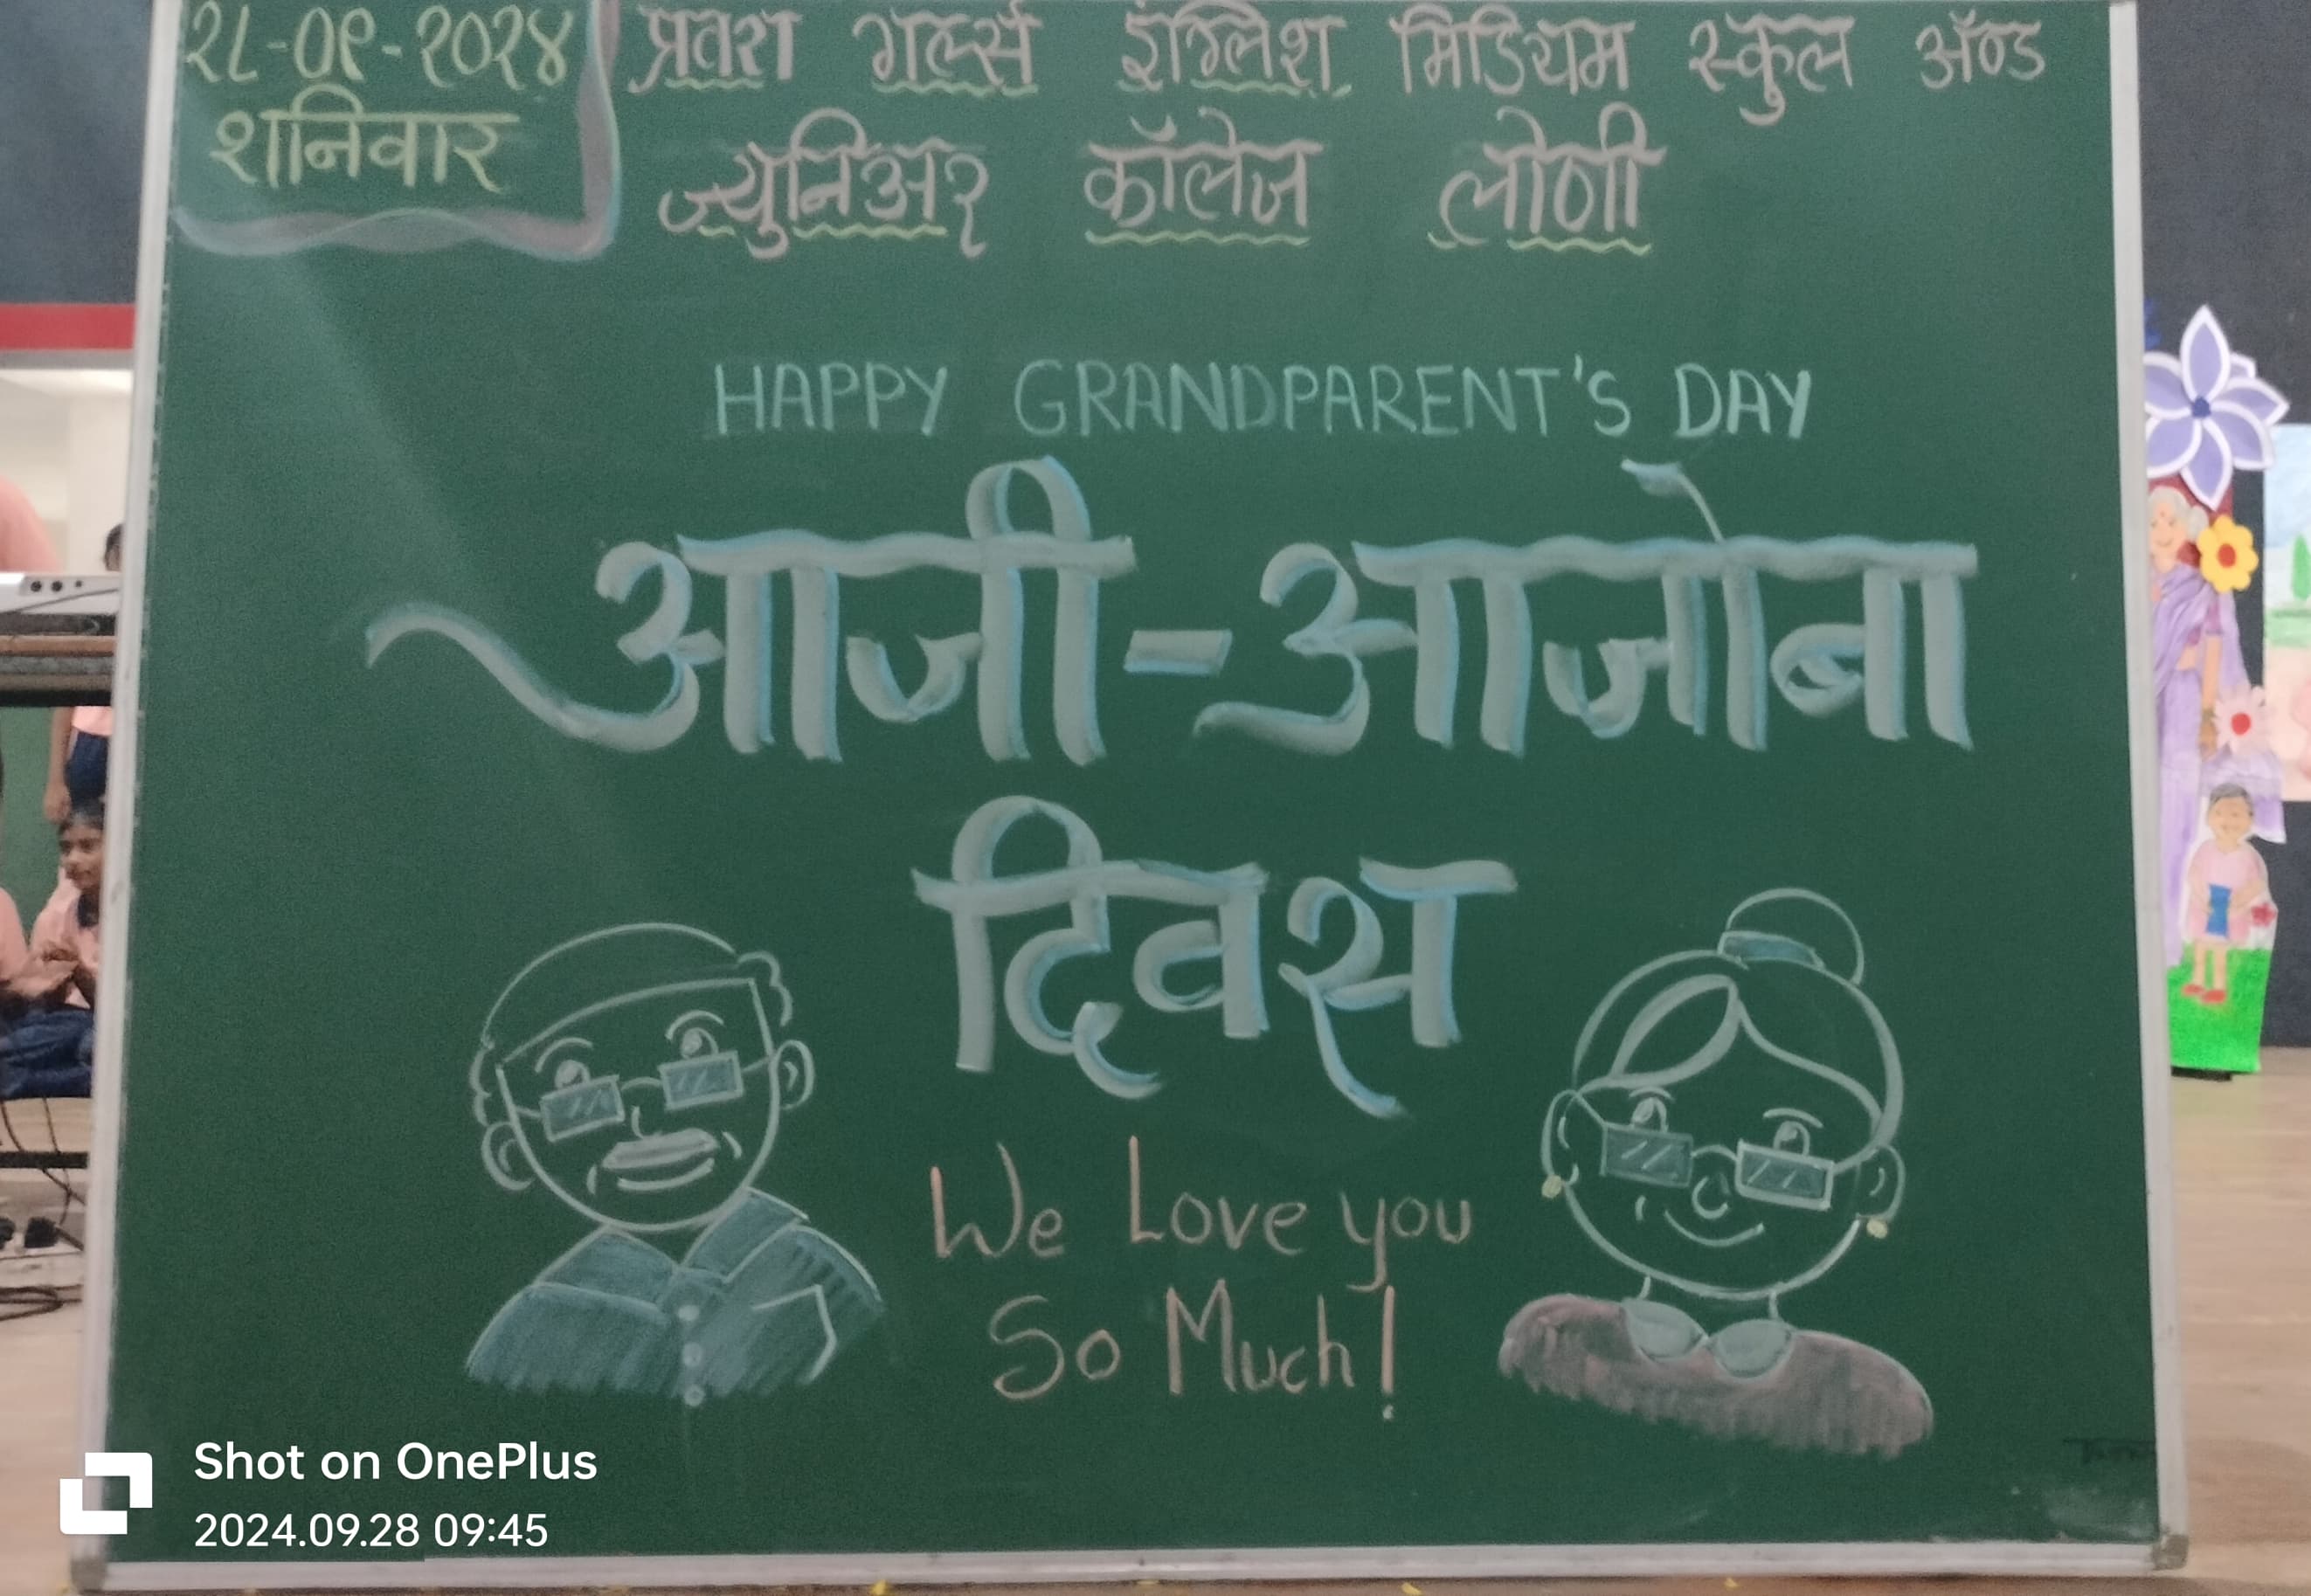 २८-०९-२०२४
शनिवार
प्रवरा गर्ल्स इंग्लिश मिडियम स्कुल ॲण्ड
ज्युनिअर कॉलेज लोणी
HAPPY GRANDPARENT'S DAY
आजी-आजोबा
दिवस
We Love you
So Much!
Shot on OnePlus
2024.09.28 09:45